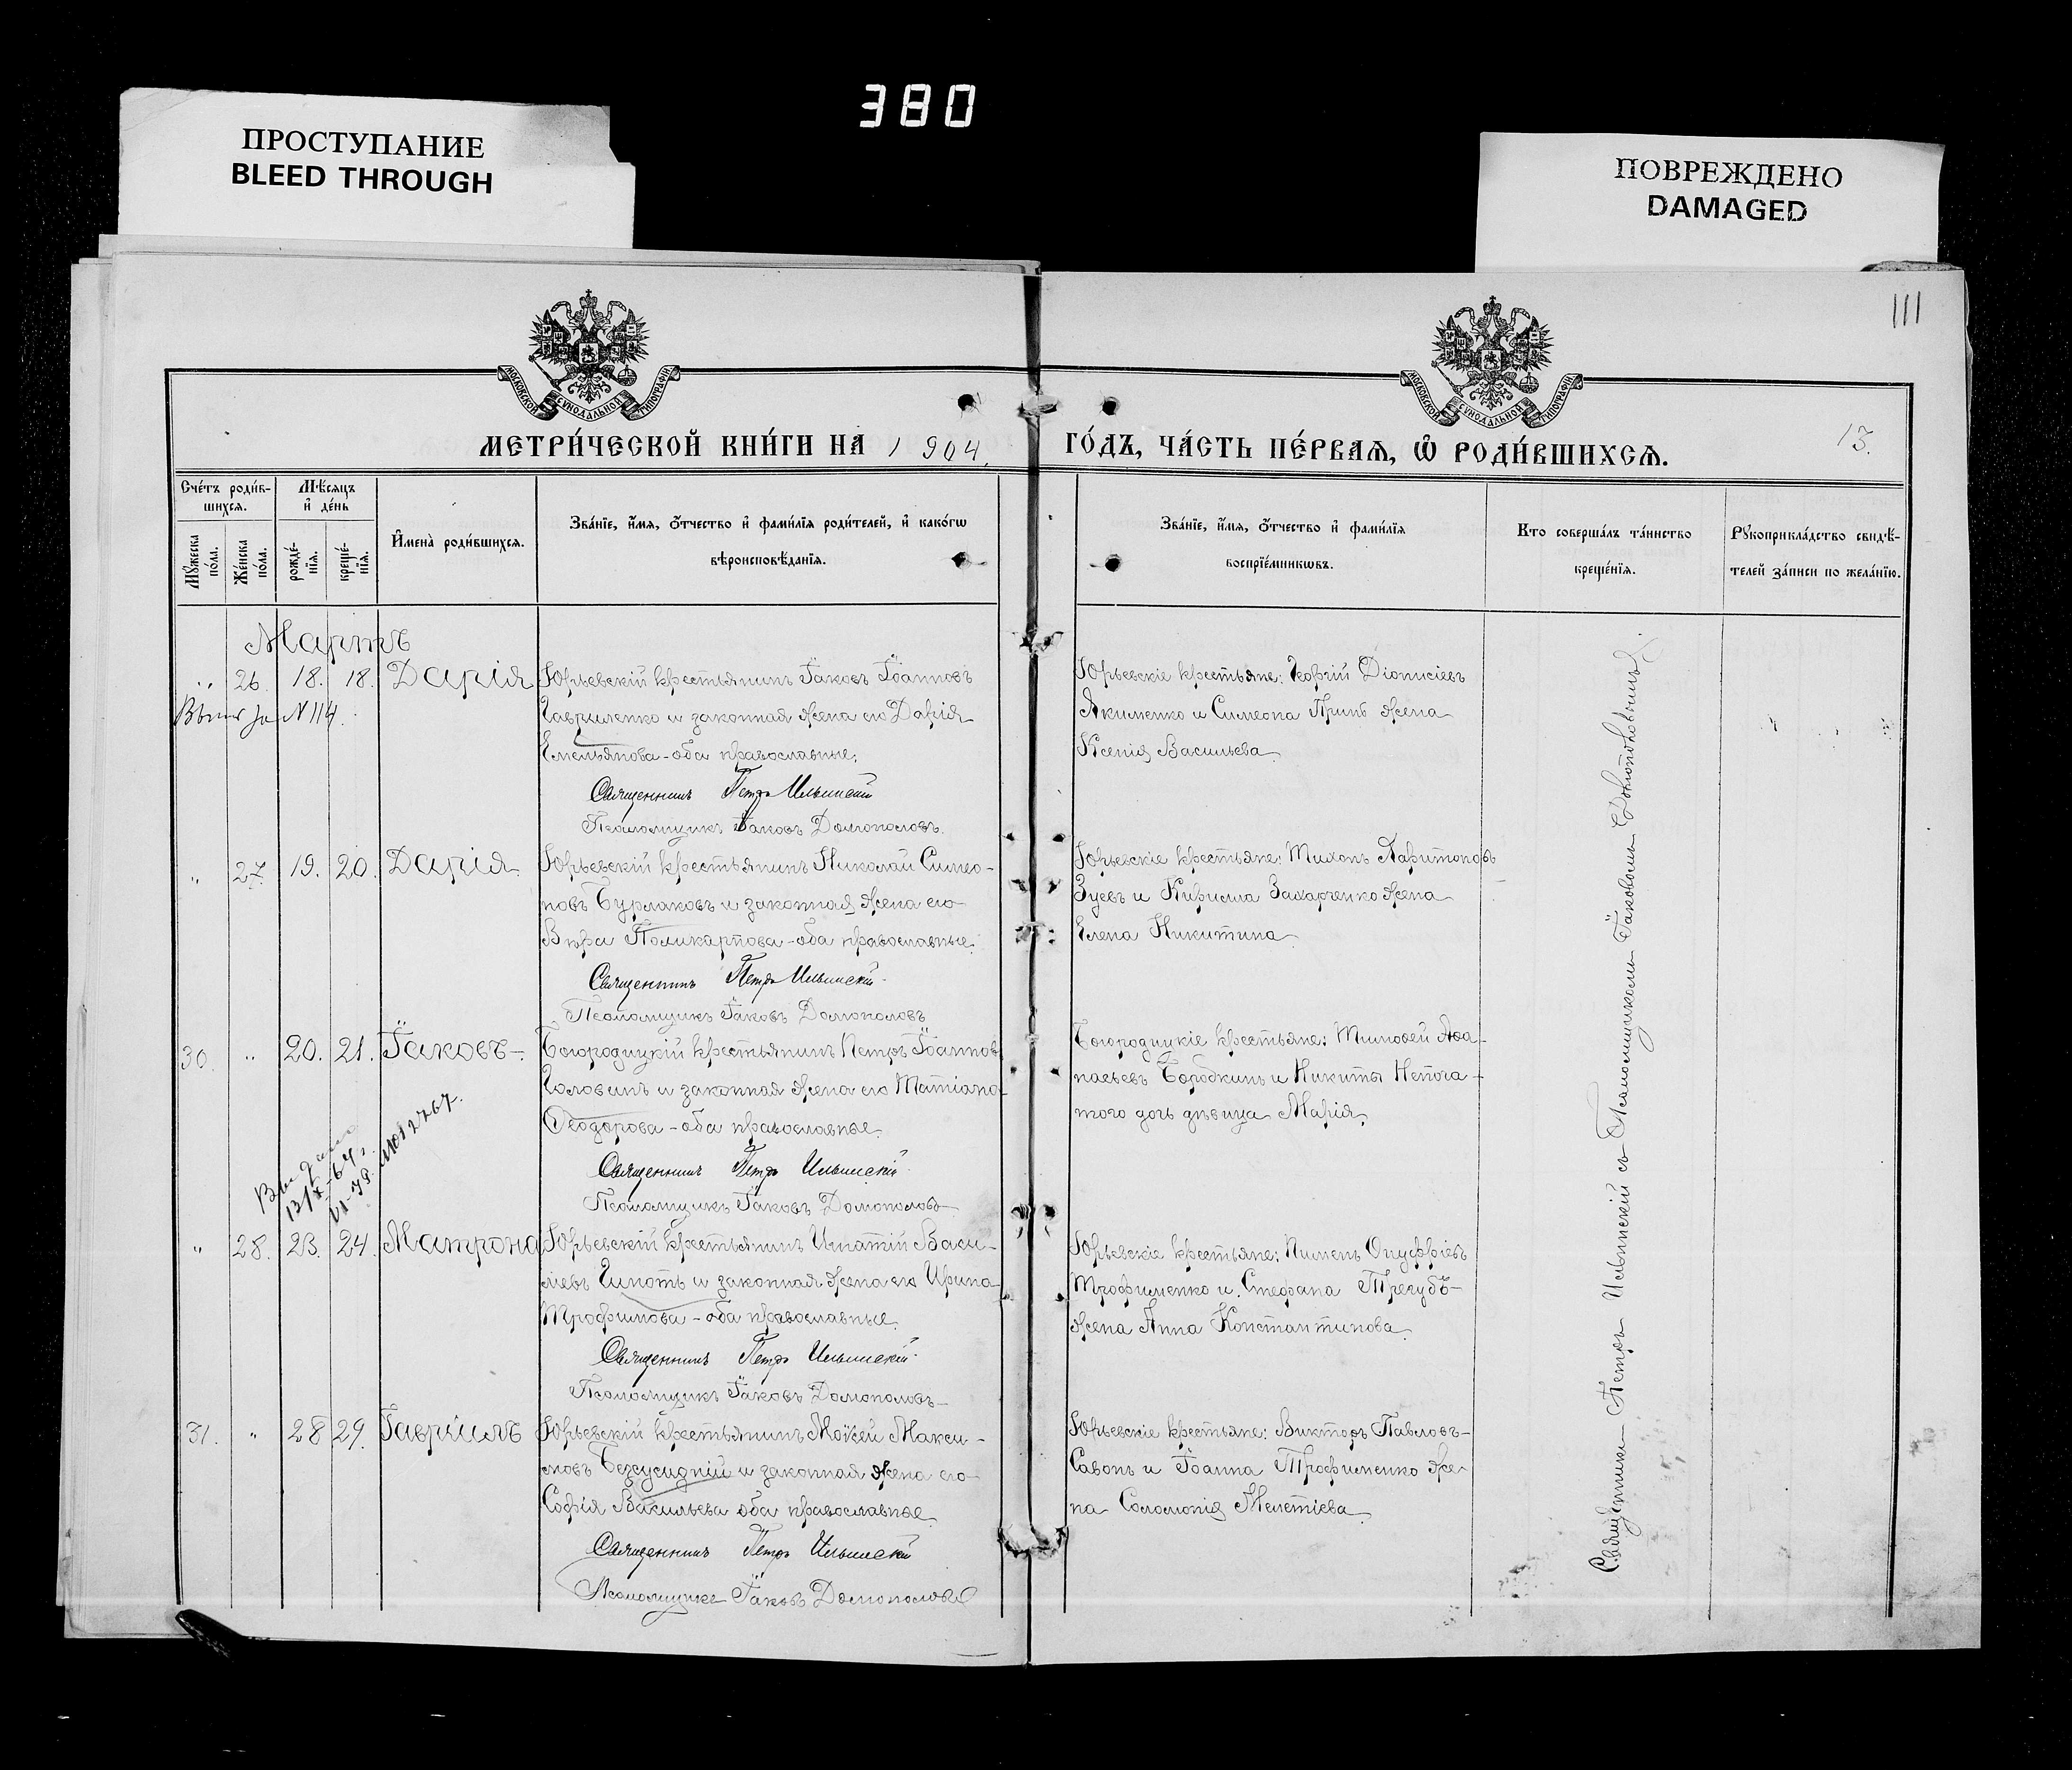 380
ПРОСТУПАНИЕ
BLEED THROUGH
ПОВРЕЖДЕНО
DAMAGED
111
МОСКОВСКОЙ СѴНОДАЛЬНОЙ ТИПОГРАФІИ
МОСКОВСКОЙ СѴНОДАЛЬНОЙ ТИПОГРАФІИ
МЕТРИ́ЧЕСКОЙ КНИ́ГИ НА 1904.
ГО́ДЪ, ЧА́СТЬ ПЕ́РВАѦ, Ѽ РОДИ́ВШИХСѦ.
13.
Сче́тъ роди́в-
шихсѧ.
Мѣ́сѧцъ
и҆ де́нь
Мꙋ́жеска по́ла.
Же́нска по́ла.
рожде́-
нїѧ.
креще́-
нїѧ.
И҆мена̀ роди́вшихсѧ.
Зва́нїе, и҆́мѧ, ѻ҆́тчество и҆ фами́лїѧ роди́телей, и҆ како́гѡ
вѣроисповѣ́данїѧ.
Зва́нїе, и҆́мѧ, ѻ҆́тчество и҆ фами́лїѧ
воспрїе́мникѡвъ.
Кто соверша́лъ та́инство
креще́нїѧ.
Рꙋкоприкла́дство свидѣ́-
телей за́писи по жела́нїю.
Мартъ
„ 26. 18. 18. Дарія
N 114.
Юрьевскій крестьянинъ Іаковъ Іоанновъ
Гавриленко и законная жена его Дарія
Емельянова - оба православные.
Священникъ Петръ Ильинскій
Псаломщикъ Іаковъ Домополовъ.
Юрьевскіе крестьяне: Георгій Діонисіевъ
Якименко и Симеона Гринь жена
Ксенія Васильева
„ 27. 19. 20. Дарія
Юрьевскій крестьянинъ Николай Симео-
новъ Бурлаковъ и законная жена его
Вѣра Поликарпова - оба православные.
Священникъ Петръ Ильинскій
Псаломщикъ Іаковъ Домополовъ
Юрьевскіе крестьяне: Тихонъ Харитоновъ
Зуевъ и Кирилла Захарченко жена
Елена Никитина
30. „ 20. 21. Іаковъ.
Богородицкій крестьянинъ Петръ Іоанновъ
Головинъ и законная жена его Татіана
Ѳеодорова - оба православные.
Священникъ Петръ Ильинскій
Псаломщикъ Іаковъ Домополовъ
Богородицкіе крестьяне: Тимоѳей Аѳа-
насьевъ Бородкинъ и Никиты Непоча-
того дочь дѣвица Марія.
„ 28. 23. 24. Матрона
Юрьевскій крестьянинъ Игнатій Васи-
льевъ и законная жена его Ирина
Трофимова - оба православные.
Священникъ Петръ Ильинскій
Псаломщикъ Іаковъ Домополовъ
Юрьевскіе крестьяне: Пименъ Онуфріевъ
Трофименко и Стефана Трегубъ
жена Анна Константинова.
31. „ 28 29. Гавріилъ
Юрьевскій крестьянинъ Мокей Макси-
мовъ и законная жена его
Софія Васильева оба православные
Священникъ Петръ Ильинскій
Псаломщикъ Іаковъ Домополовъ
Юрьевскіе крестьяне: Викторъ Павловъ
Савонъ и Іоанна Трофименко же-
на Соломонія Мелетіева
Священникъ Петръ Ильинскій съ Псаломщикомъ Іаковомъ